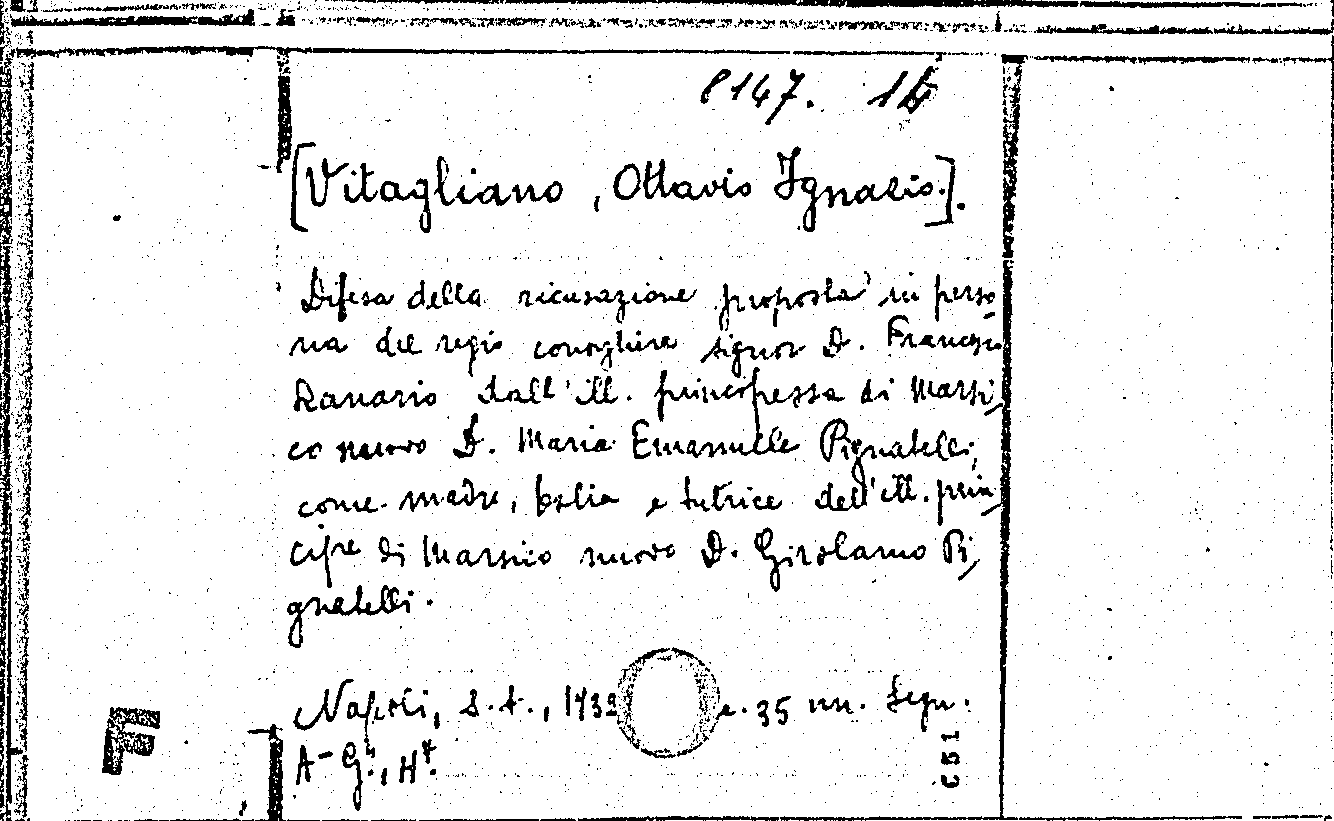 8147. 14
[Vitagliano, Ottavio Ignazio.].
Difesa della ricusazione proposta in perso
na del regio consigliere signor D. Francesco
Ranario dall'ill. principessa di Marsi,
co nuovo D. Maria Emanuelle Pignatelli,
come madre, balia e tutrice dell'ill. prin,
cipe di Marsico nuovo D. Girolamo Pi,
gnatelli.
Napoli, s. t., 1732 c. 35 nn. Segn.
A-G⁴., H⁴.
F
C51